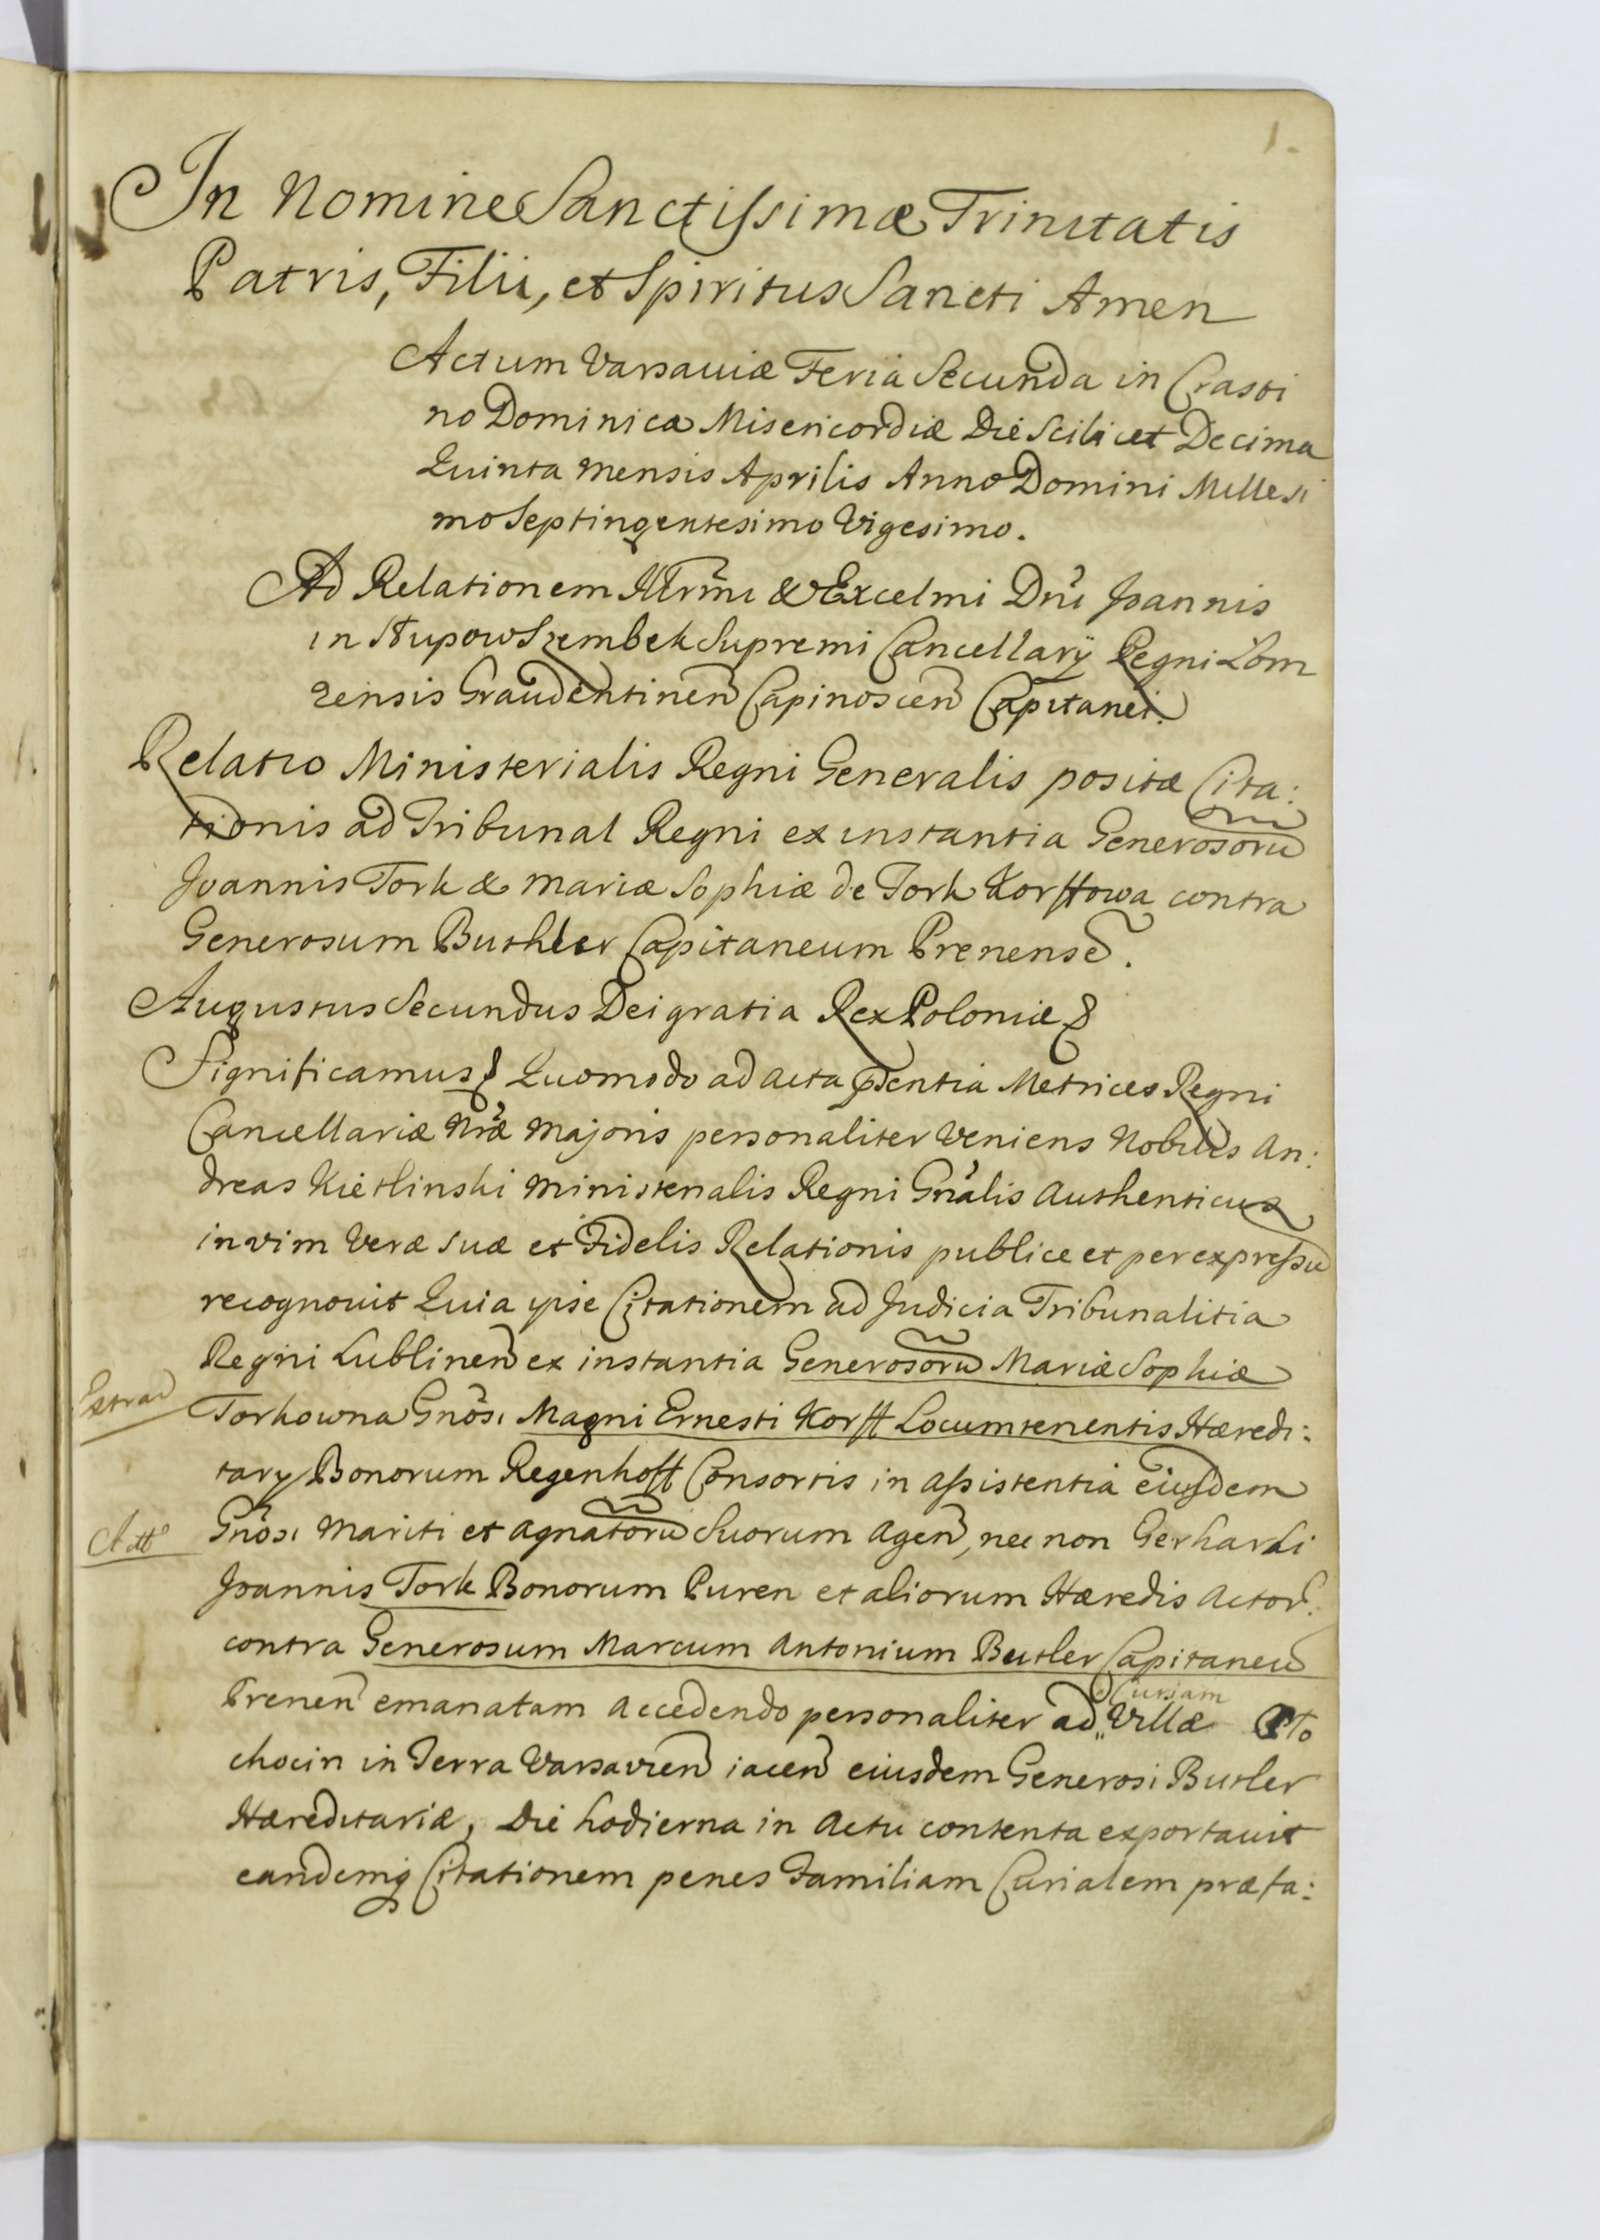 1.
In Nomine Sanctissimæ Trinitatis
Patris, Filii, et Spiritus Sancti Amen
Actum Varsaviæ Feria Secunda in Crasti
no Dominicæ Misericordiæ Die Scilicet Decima
Quinta Mensis Aprilis Anno Domini Millesi
mo Septingentesimo Vigesimo.
Ad Relationem Illrmi & Excelmi Dni Joannis
in Słupow Szembek Supremi Cancellarÿ Regni Lom
zensis Graudentinen Capinoscen Capitanei.
Relatio Ministerialis Regni Generalis positæ Cita:
tionis ad Tribunal Regni ex instantia Generosoru
Joannis Tork & Mariæ Sophiæ de Tork Korffowa contra
Generosum Buthler Capitaneum Prenense.
Augustus Secundus Dei gratia Rex Poloniæ &
Significamus & Quomodo ad acta pntia Metrices Regni
Cancellariæ Nræ Majoris personaliter Veniens Nobilis An:
dreas Kietlinski Ministerialis Regni Gnalis Authenticus
in vim Veræ suæ et Fidelis Relationis publice et per expressu
recognovit Quia ipse Citationem ad Judicia Tribunalitia
Regni Lublinen ex instantia Generosoru Mariæ Sophiæ
Torkowna Gnosi Magni Ernesti Korff Locumtenentis Hæredi:
tarÿ Bonorum Regenhoff Consortis in assistentia eiusdem
Gnosi Mariti et Agnatoru Suorum Agen, nec non Gerhardi
Joannis Tork Bonorum Puren et aliorum Hæredis Actor.
contra Generosum Marcum Antonium Butler Capitaneu
Prenen emanatam accedendo personaliter ad Curiam Villæ Oto
chocin in Terra Varsavien iacen eiusdem Generosi Butler
Hæreditariæ, Die hodierna in Actu contenta exportavit
eandemq Citationem penes Familiam Curialem præfa:
Extrad